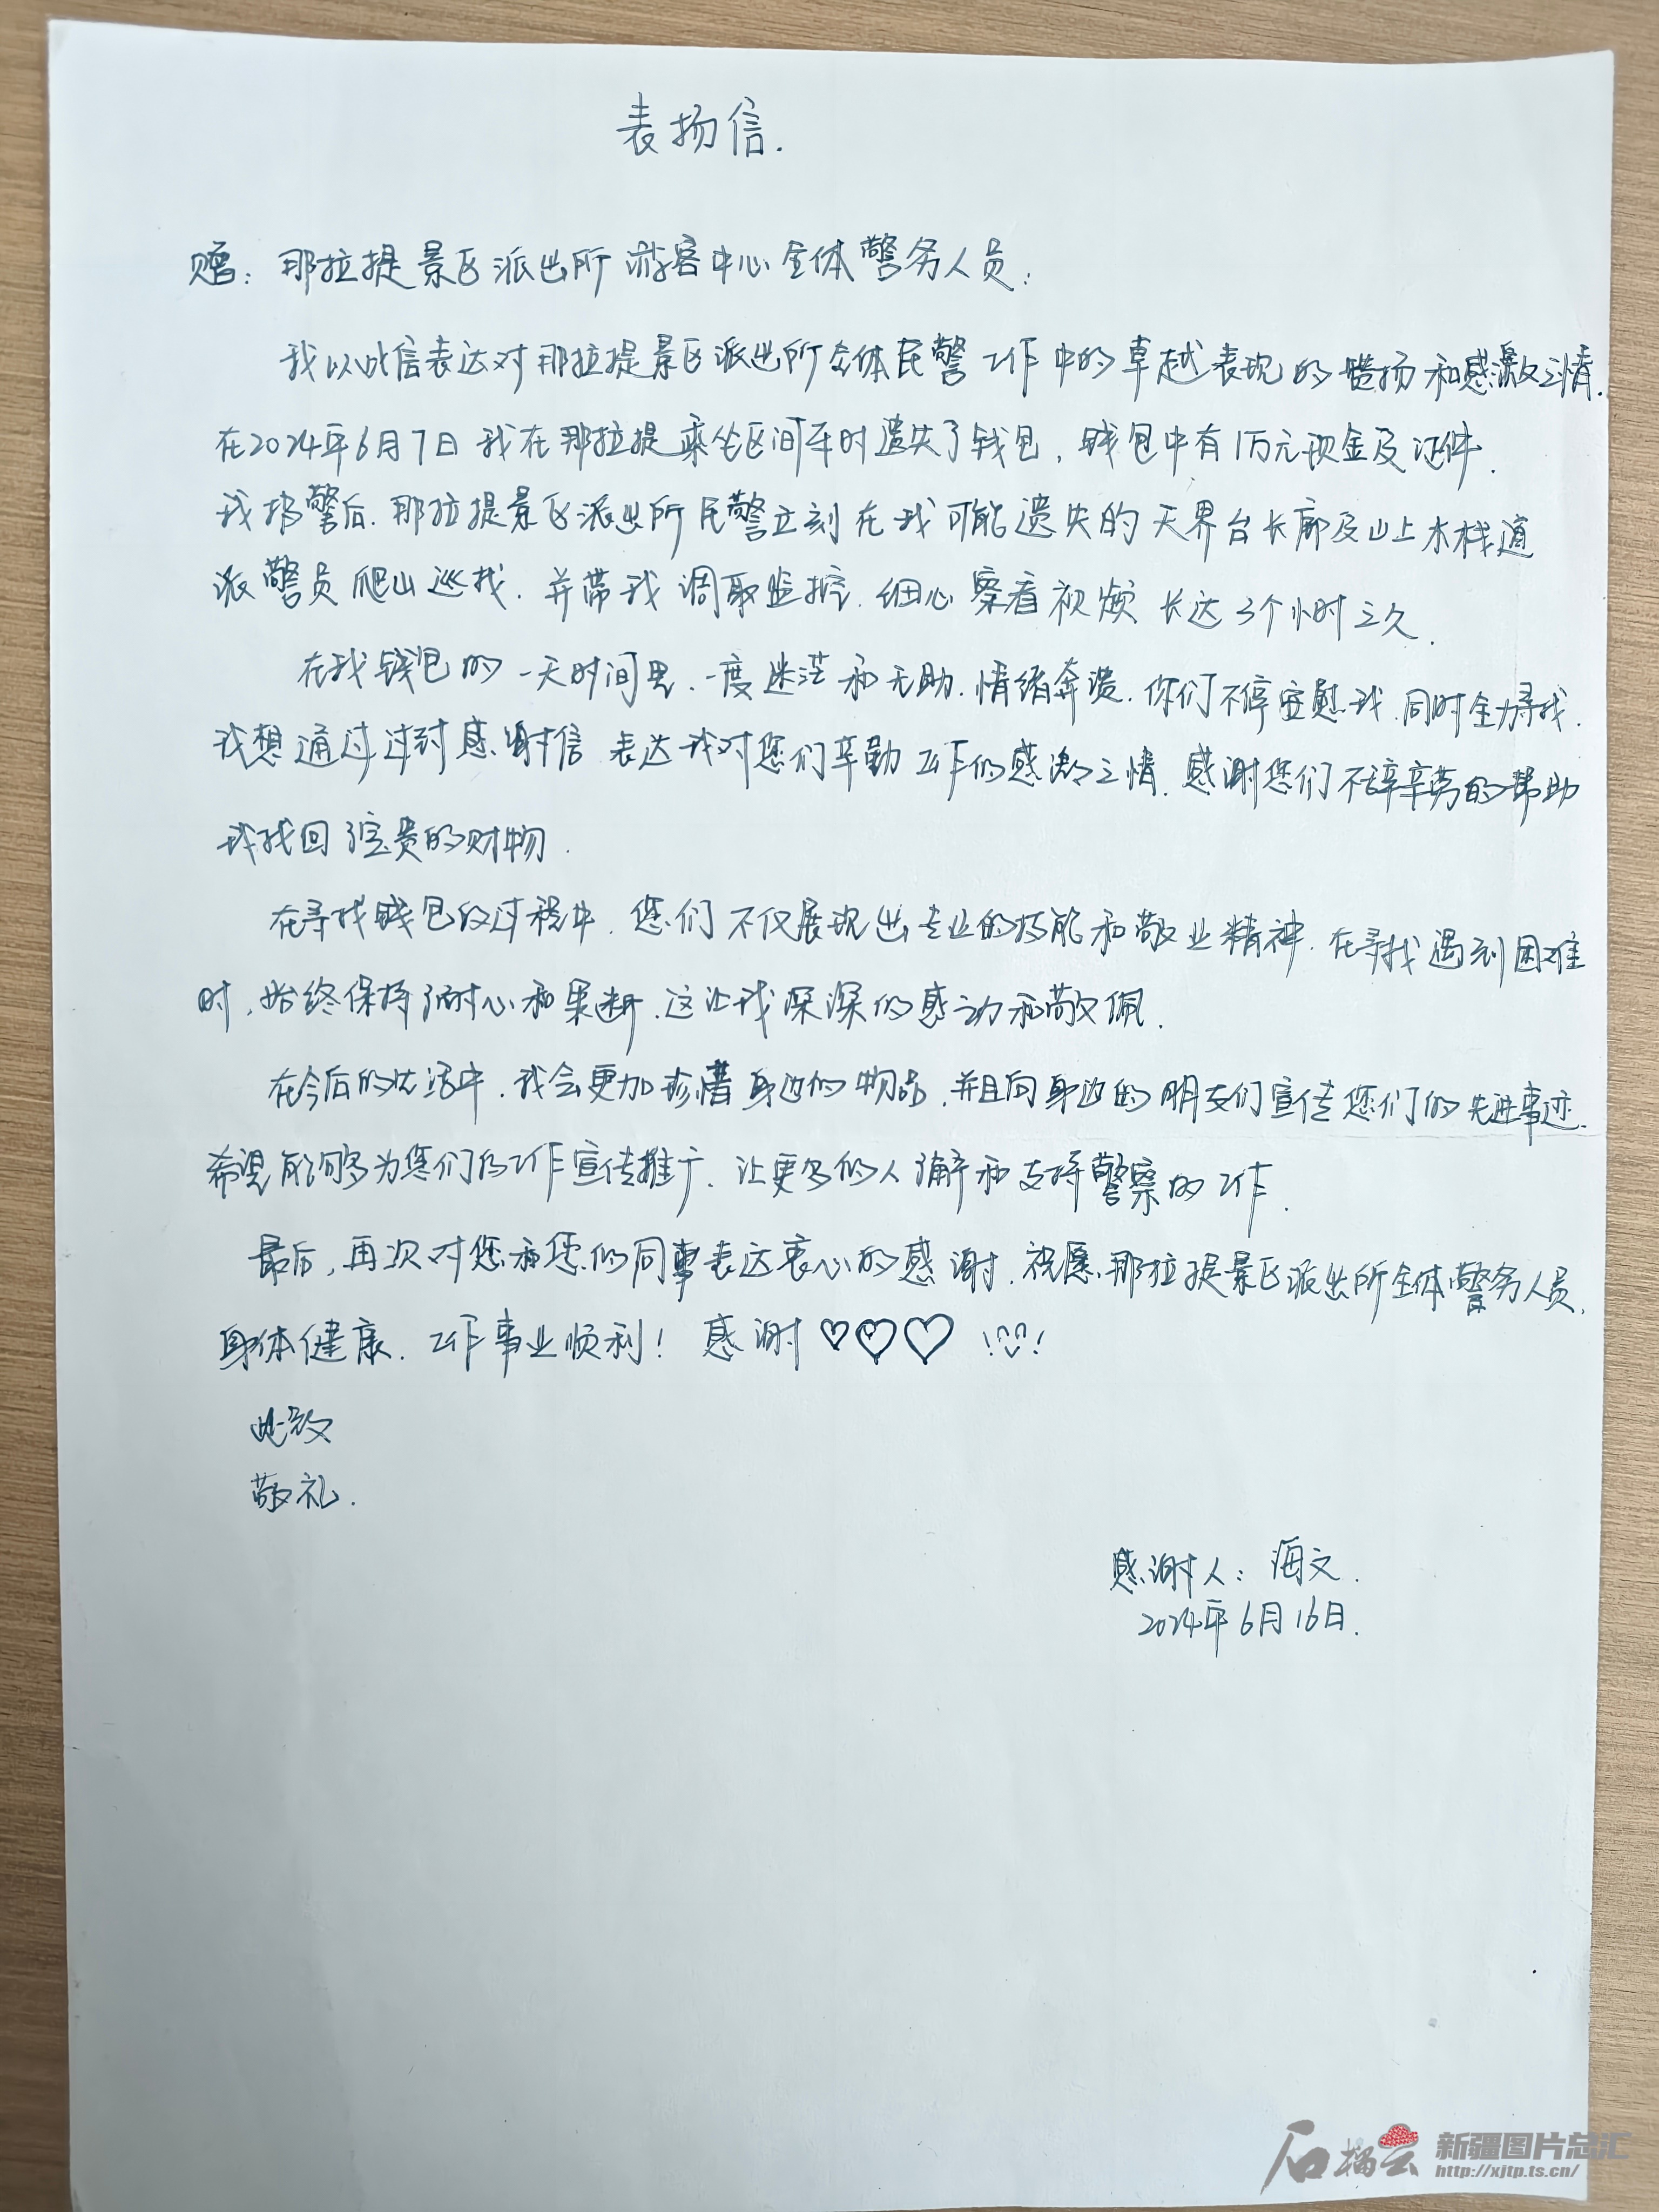 表扬信.
赠：那拉提景区派出所游客中心全体警务人员：
我以此信表达对那拉提景区派出所全体民警工作中的卓越表现的赞扬和感激之情.
在2024年6月7日我在那拉提乘坐区间车时遗失了钱包，钱包中有1万元现金及证件.
我报警后.那拉提景区派出所民警立刻在我可能遗失的天界台长廊及山上木栈道
派警员爬山巡找.并带我调取监控.细心察看视频长达3个小时之久.
在我钱包的一天时间里.一度迷茫和无助.情绪奔溃.你们不停安慰我.同时全力寻找.
我想通过过封感谢信表达我对您们辛勤工作的感激之情.感谢您们不辞辛劳的帮助
我找回了宝贵的财物.
在寻找钱包的过程中.您们不仅展现出专业的技能和敬业精神.在寻找遇到困难
时，始终保持了耐心和果断.这让我深深的感动和敬佩.
在今后的生活中.我会更加珍惜身边的物品.并且向身边的朋友们宣传您们的先进事迹.
希望能够多为您们的工作宣传推广.让更多的人了解和支持警察的工作.
最后，再次对您和您的同事表达衷心的感谢.祝愿那拉提景区派出所全体警务人员，
身体健康.工作事业顺利！感谢♡♡♡
此致
敬礼.
感谢人：海文.
2024年6月16日.
石榴云 新疆图片总汇
http://xjtp.ts.cn/